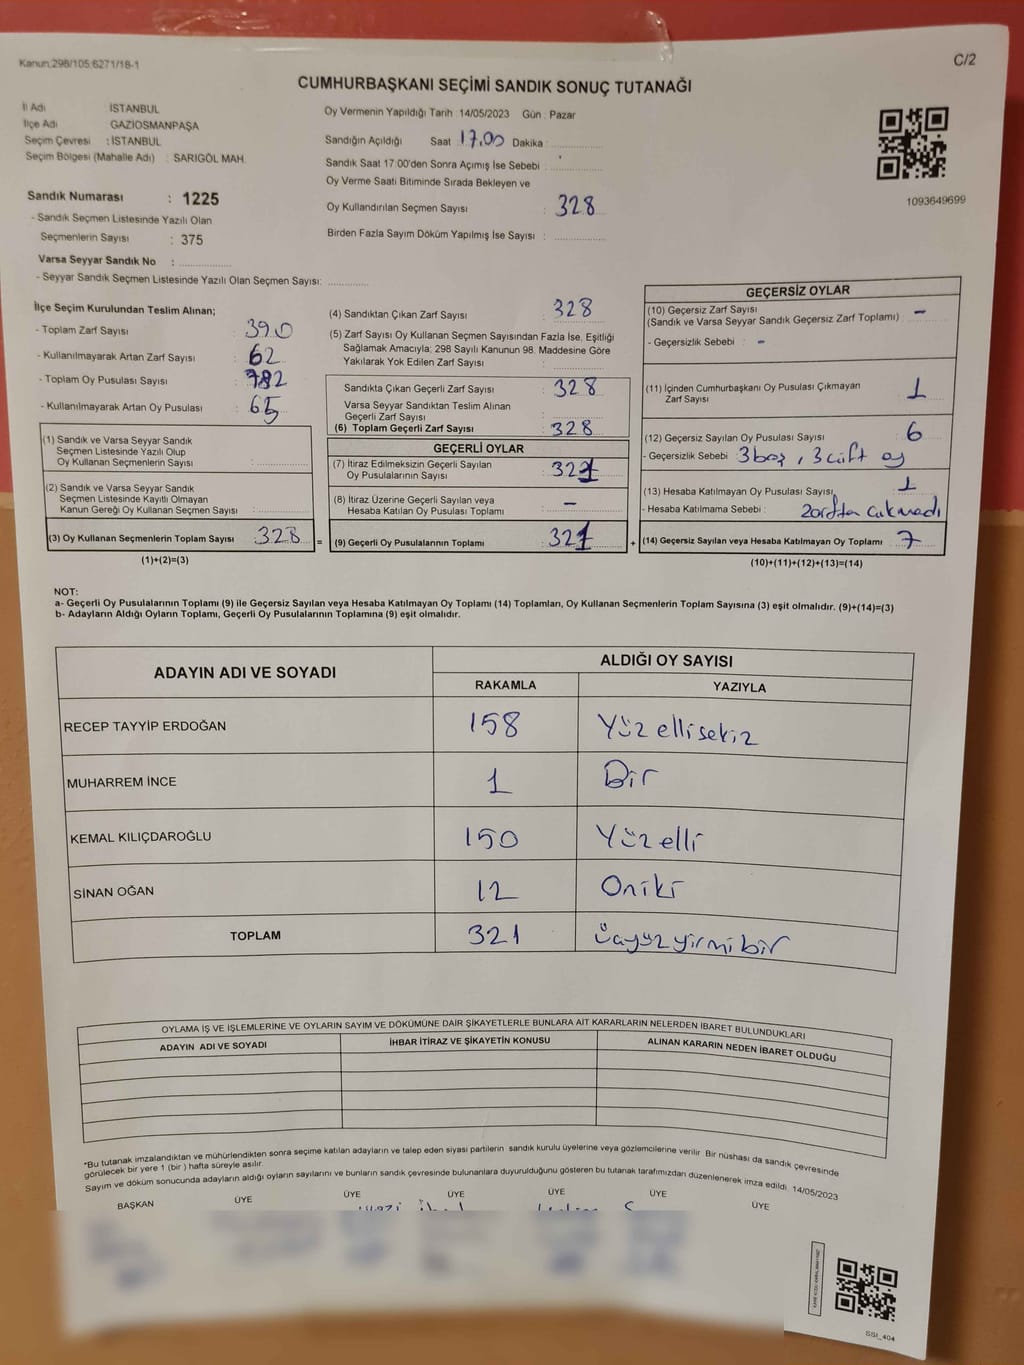 Kanun:298/105;6271/18-1
C/2
CUMHURBAŞKANI SEÇİMİ SANDIK SONUÇ TUTANAĞI
İl Adı : İSTANBUL
İlçe Adı : GAZİOSMANPAŞA
Seçim Çevresi : İSTANBUL
Seçim Bölgesi (Mahalle Adı) : SARIGÖL MAH.
Sandık Numarası : 1225
- Sandık Seçmen Listesinde Yazılı Olan
Seçmenlerin Sayısı : 375
Varsa Seyyar Sandık No :
- Seyyar Sandık Seçmen Listesinde Yazılı Olan Seçmen Sayısı:
Oy Vermenin Yapıldığı Tarih : 14/05/2023 Gün : Pazar
Sandığın Açıldığı Saat 17.00 Dakika :
Sandık Saat 17:00'den Sonra Açımış İse Sebebi :
Oy Verme Saati Bitiminde Sırada Bekleyen ve
Oy Kullandırılan Seçmen Sayısı : 328
Birden Fazla Sayım Döküm Yapılmış İse Sayısı :
1093649699
İlçe Seçim Kurulundan Teslim Alınan;
- Toplam Zarf Sayısı : 390
- Kullanılmayarak Artan Zarf Sayısı : 62
- Toplam Oy Pusulası Sayısı : 782
- Kullanılmayarak Artan Oy Pusulası : 65
(1) Sandık ve Varsa Seyyar Sandık
Seçmen Listesinde Yazılı Olup
Oy Kullanan Seçmenlerin Sayısı :
(2) Sandık ve Varsa Seyyar Sandık
Seçmen Listesinde Kayıtlı Olmayan
Kanun Gereği Oy Kullanan Seçmen Sayısı :
(3) Oy Kullanan Seçmenlerin Toplam Sayısı : 328 =
(1)+(2)=(3)
(4) Sandıktan Çıkan Zarf Sayısı : 328
(5) Zarf Sayısı Oy Kullanan Seçmen Sayısından Fazla İse, Eşitliği
Sağlamak Amacıyla; 298 Sayılı Kanunun 98. Maddesine Göre
Yakılarak Yok Edilen Zarf Sayısı :
Sandıkta Çıkan Geçerli Zarf Sayısı : 328
Varsa Seyyar Sandıktan Teslim Alınan
Geçerli Zarf Sayısı :
(6) Toplam Geçerli Zarf Sayısı : 328
GEÇERLİ OYLAR
(7) İtiraz Edilmeksizin Geçerli Sayılan
Oy Pusulalarının Sayısı : 321
(8) İtiraz Üzerine Geçerli Sayılan veya
Hesaba Katılan Oy Pusulası Toplamı : –
(9) Geçerli Oy Pusulalarının Toplamı : 321 +
GEÇERSİZ OYLAR
(10) Geçersiz Zarf Sayısı : –
(Sandık ve Varsa Seyyar Sandık Geçersiz Zarf Toplamı)
- Geçersizlik Sebebi : –
(11) İçinden Cumhurbaşkanı Oy Pusulası Çıkmayan
Zarf Sayısı : 1
(12) Geçersiz Sayılan Oy Pusulası Sayısı : 6
- Geçersizlik Sebebi : 3 boş, 3 çift oy
(13) Hesaba Katılmayan Oy Pusulası Sayısı : 1
- Hesaba Katılmama Sebebi : Zarftan çıkmadı
(14) Geçersiz Sayılan veya Hesaba Katılmayan Oy Toplamı : 7
(10)+(11)+(12)+(13)=(14)
NOT:
a- Geçerli Oy Pusulalarının Toplamı (9) ile Geçersiz Sayılan veya Hesaba Katılmayan Oy Toplamı (14) Toplamları, Oy Kullanan Seçmenlerin Toplam Sayısına (3) eşit olmalıdır. (9)+(14)=(3)
b- Adayların Aldığı Oyların Toplamı, Geçerli Oy Pusulalarının Toplamına (9) eşit olmalıdır.
ADAYIN ADI VE SOYADI
ALDIĞI OY SAYISI
RAKAMLA YAZIYLA
RECEP TAYYİP ERDOĞAN 158 Yüz ellisekiz
MUHARREM İNCE 1 Bir
KEMAL KILIÇDAROĞLU 150 Yüz elli
SİNAN OĞAN 12 Oniki
TOPLAM 321 Üçyüzyirmibir
OYLAMA İŞ VE İŞLEMLERİNE VE OYLARIN SAYIM VE DÖKÜMÜNE DAİR ŞİKAYETLERLE BUNLARA AİT KARARLARIN NELERDEN İBARET BULUNDUKLARI
ADAYIN ADI VE SOYADI İHBAR İTİRAZ VE ŞİKAYETİN KONUSU ALINAN KARARIN NEDEN İBARET OLDUĞU
"Bu tutanak imzalandıktan ve mühürlendikten sonra seçime katılan adayların ve talep eden siyasi partilerin sandık kurulu üyelerine veya gözlemcilerine verilir. Bir nüshası da sandık çevresinde
görülecek bir yere 1 (bir) hafta süreyle asılır.
Sayım ve döküm sonucunda adayların aldığı oyların sayılarını ve bunların sandık çevresinde bulunanlara duyurulduğunu gösteren bu tutanak tarafımızdan düzenlenerek imza edildi. 14/05/2023
BAŞKAN ÜYE ÜYE ÜYE ÜYE ÜYE ÜYE
SSI_404